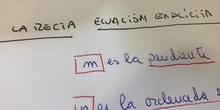 LA RECTA ECUACIÓN EXPLÍCITA
m es la pendiente
n es la ordenada